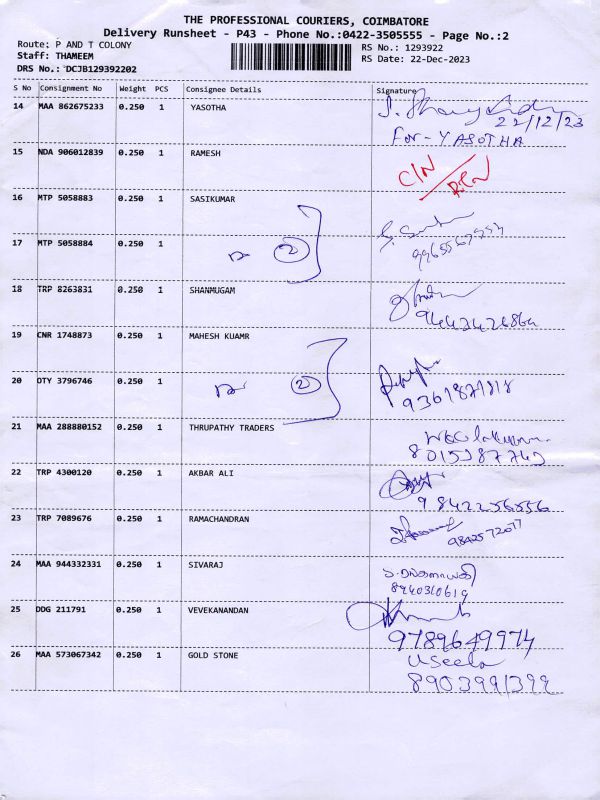 THE PROFESSIONAL COURIERS, COIMBATORE
Delivery Runsheet - P43 - Phone No.:0422-3505555 - Page No.:2
Route: P AND T COLONY
Staff: THAMEEM
DRS No.: DCJB129392202
RS No.: 1293922
RS Date: 22-Dec-2023
S No Consignment No Weight PCS Consignee Details Signature
14 MAA 862675233 0.250 1 YASOTHA
22/12/23
For - YASOTHA
15 NDA 906012839 0.250 1 RAMESH
16 MTP 5058883 0.250 1 SASIKUMAR
17 MTP 5058884 0.250 1
2
18 TRP 8263831 0.250 1 SHANMUGAM
19 CNR 1748873 0.250 1 MAHESH KUAMR
20 OTY 3796746 0.250 1
2
21 MAA 288880152 0.250 1 THRUPATHY TRADERS
22 TRP 4300120 0.250 1 AKBAR ALI
9842256556
23 TRP 7089676 0.250 1 RAMACHANDRAN
9842572077
24 MAA 944332331 0.250 1 SIVARAJ
8940310619
25 DDG 211791 0.250 1 VEVEKANANDAN
9789649974
26 MAA 573067342 0.250 1 GOLD STONE
8903991399